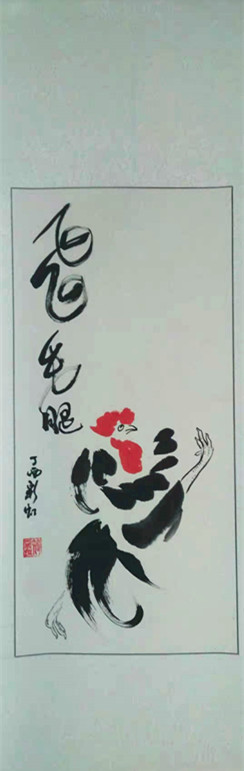 飞毛腿
丁酉彩虹